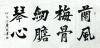 蘭風
梅骨
劍膽
琴心